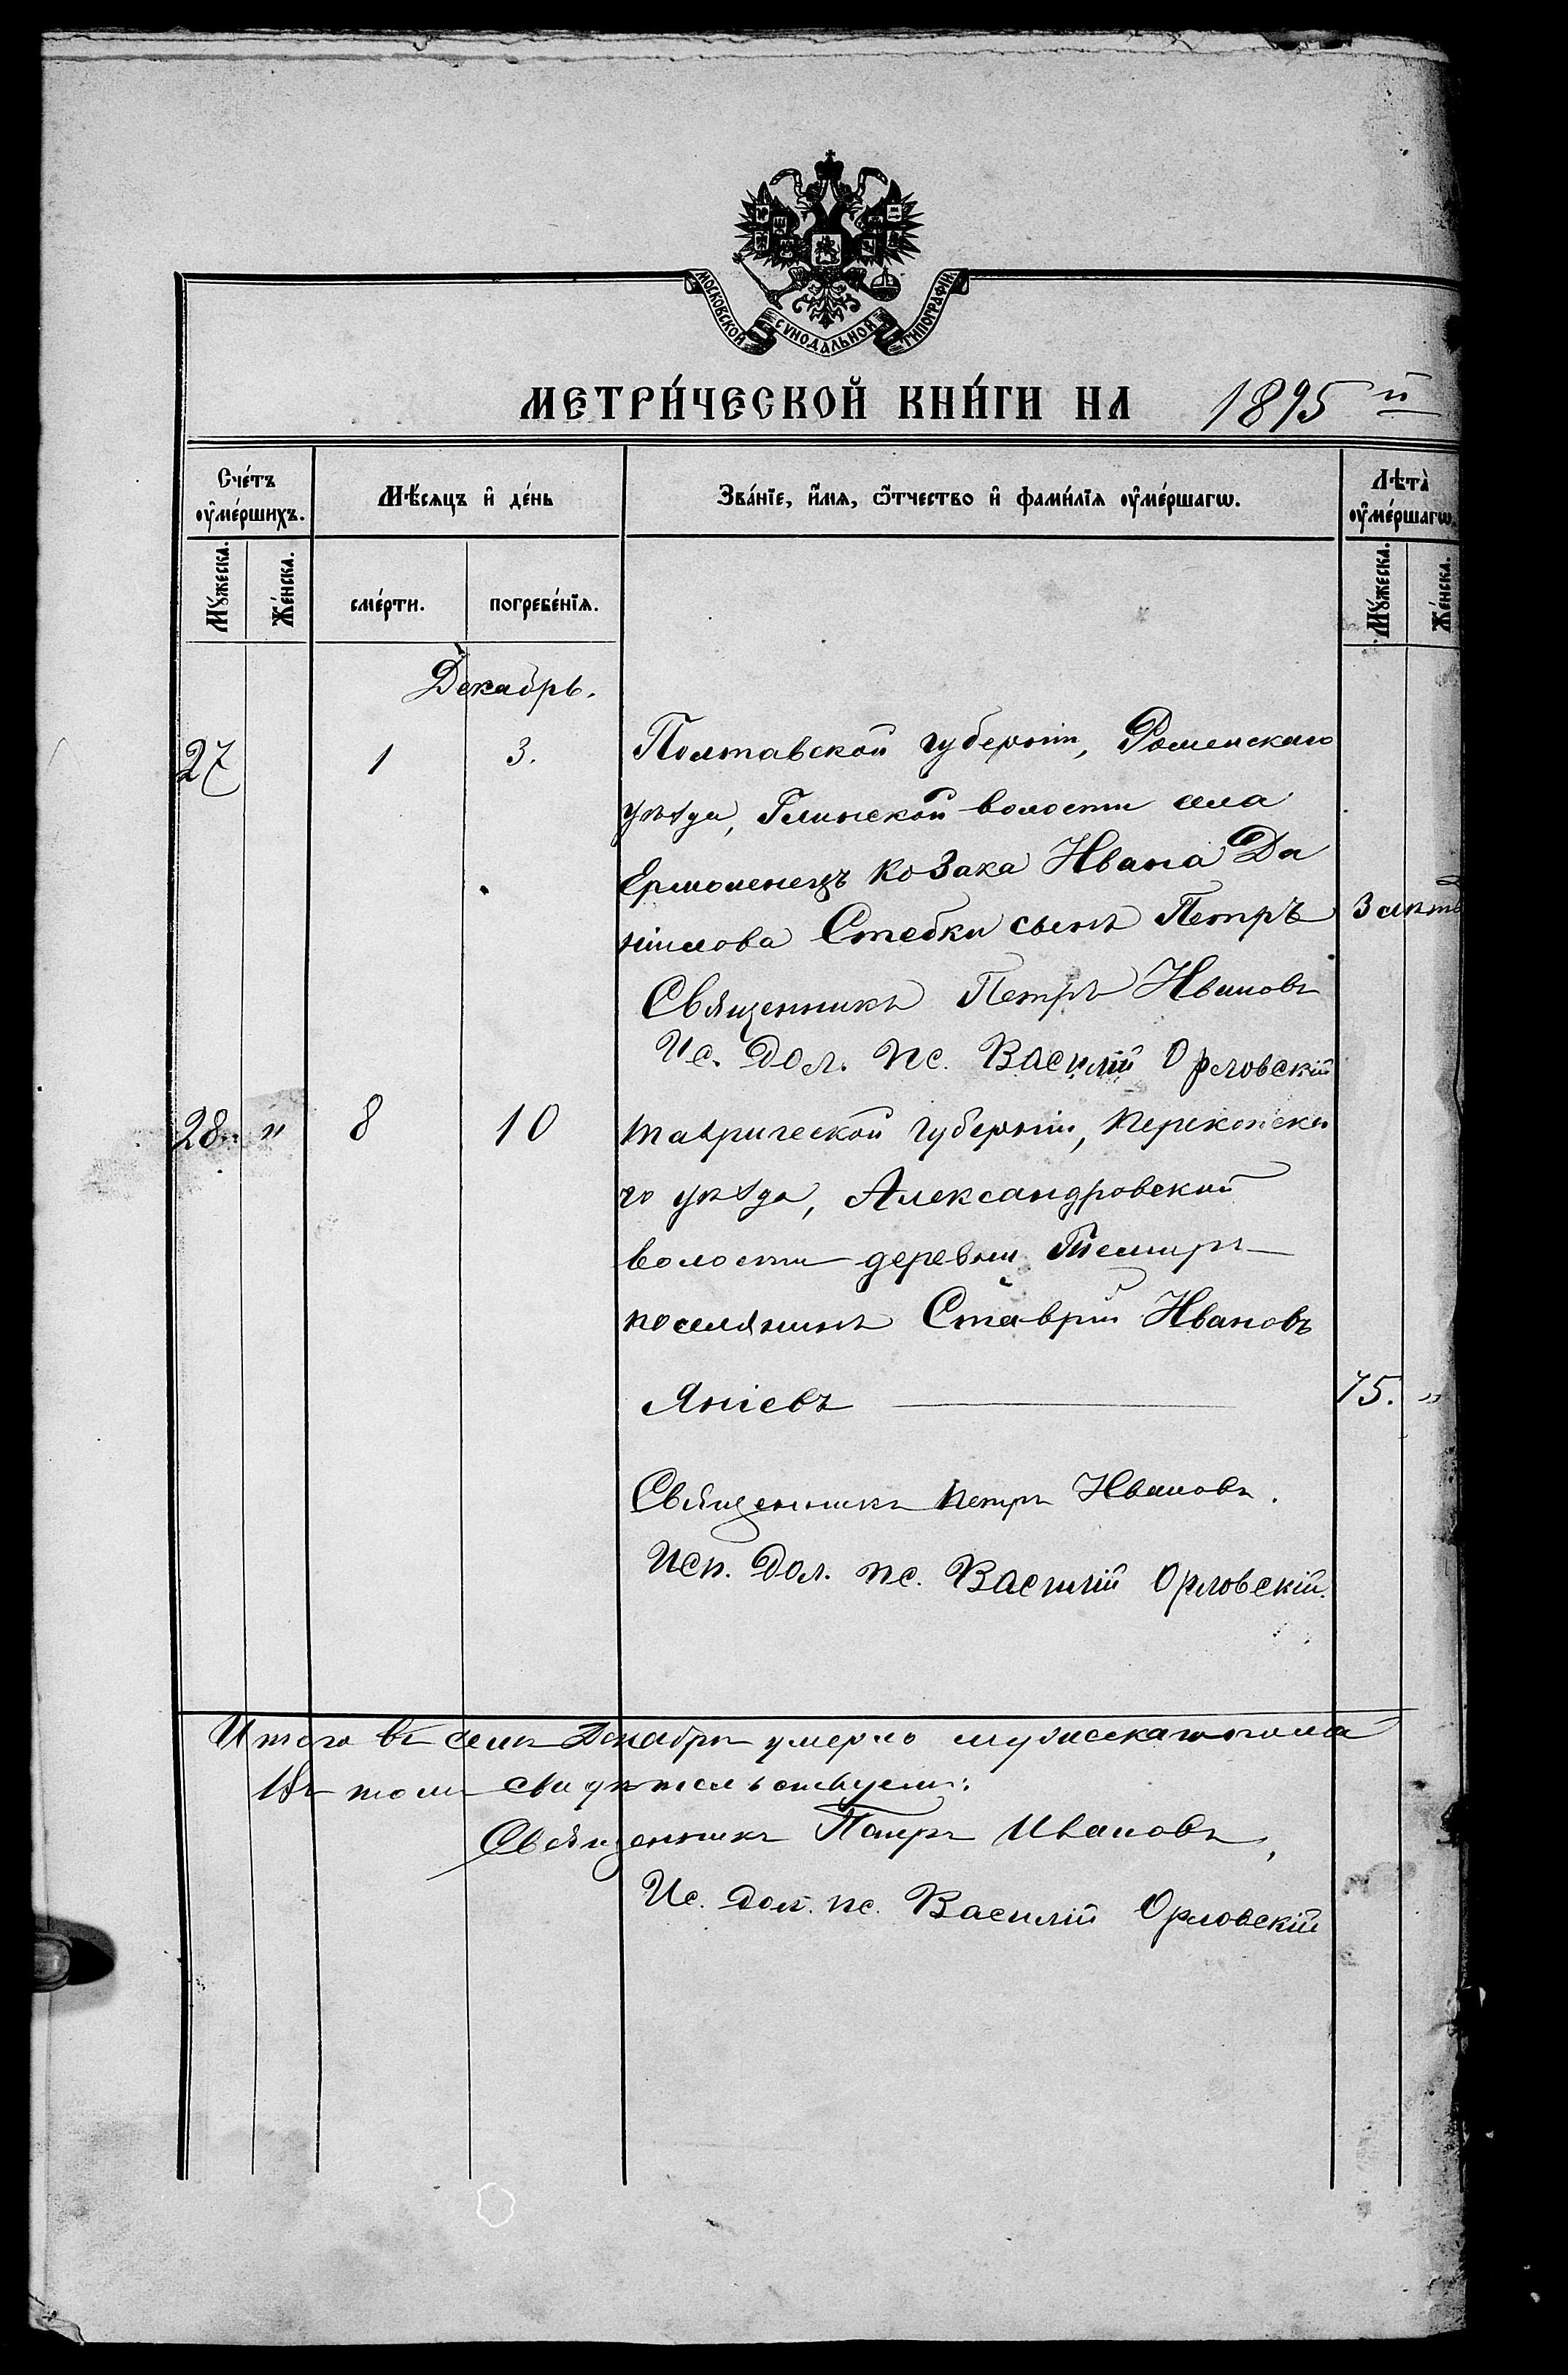 МОСКОВСКОЙ СѴНОДАЛЬНОЙ ТИПОГРАФІИ
МЕТРИ́ЧЕСКОЙ КНИ́ГИ НА 1895 й
Сче́тъ ᲂу҆ме́ршихъ.
Мѣ́сѧцъ и҆ де́нь
Зва́нїе, и҆́мѧ, ѻ҆́тчество и҆ фами́лїѧ ᲂу҆ме́ршагѡ.
Лѣта̀ ᲂу҆ме́ршагѡ.
Мꙋ́жеска. Же́нска. сме́рти. погребе́нїѧ. Мꙋ́жеска. Же́нска.
Декабрь.
27 1 3. Полтавской губерніи, Роменскаго
уѣзда, Глинской волости села
Ермоленецъ козака Ивана Да
ніилова Стебки сынъ Петръ 3 лѣтъ
Священникъ Петръ Ивановъ
Ис. Дол. пс. Василій Орловскій
28. " 8 10 Таврической губерніи, Перекопска
го уѣзда, Александровской
волости деревни Темиръ
поселянинъ Ставрій Ивановъ
Яніевъ 75. "
Священникъ Петръ Ивановъ.
Исп. Дол. пс. Василій Орловскій.
Итого въ семъ Декабрѣ умерло мужескаго пола
Въ томъ свидѣтельствуемъ:
Священникъ Петръ Ивановъ,
Ис. дол. пс. Василій Орловскій